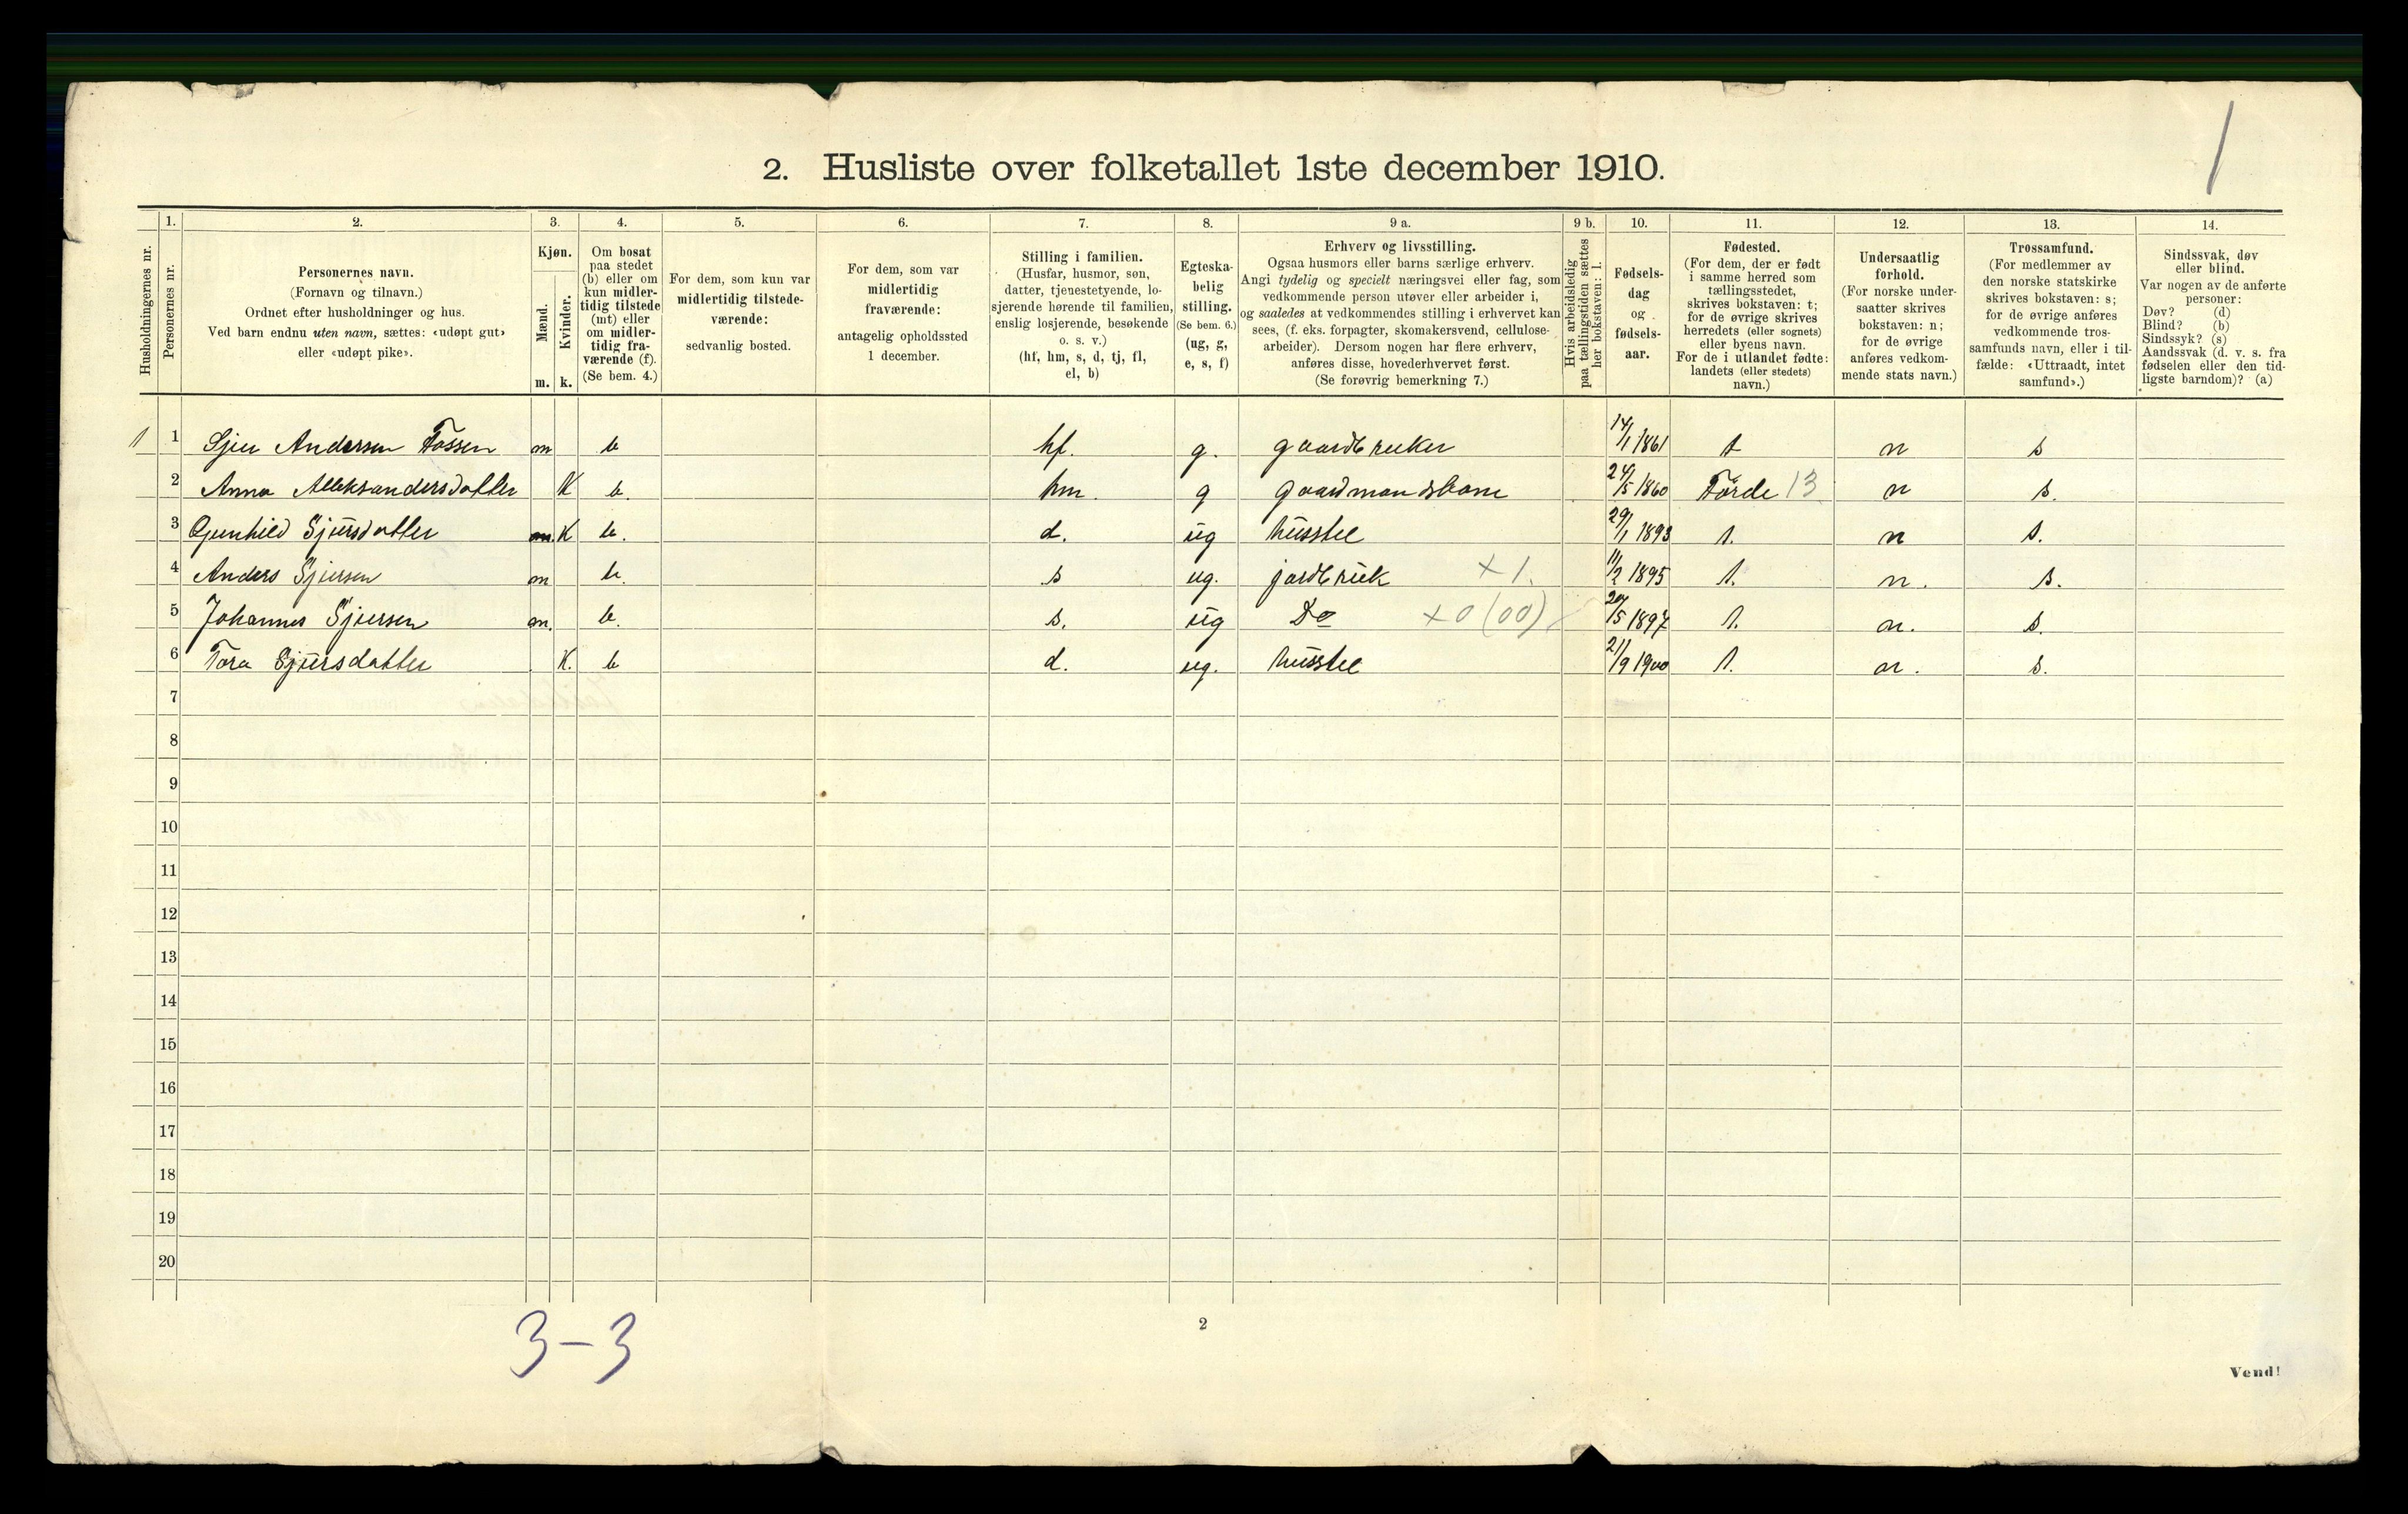 1
2. Husliste over folketallet 1ste december 1910.
Husholdningernes nr.
1. Personernes nr.
2. Personernes navn. (Fornavn og tilnavn.) Ordnet efter husholdninger og hus. Ved barn endnu uten navn, sættes: «udøpt gut» eller «udøpt pike».
3. Kjøn. Mænd. m. Kvinder. k.
4. Om bosat paa stedet (b) eller om kun midlertidig tilstede (mt) eller om midlertidig fraværende (f). (Se bem. 4.)
5. For dem, som kun var midlertidig tilstedeværende: sedvanlig bosted.
6. For dem, som var midlertidig fraværende: antagelig opholdssted 1 december.
7. Stilling i familien. (Husfar, husmor, søn, datter, tjenestetyende, losjerende hørende til familien, enslig losjerende, besøkende o. s. v.) (hf, hm, s, d, tj, fl, el, b)
8. Egteskabelig stilling. (Se bem. 6.) (ug, g, e, s, f)
9 a. Erhverv og livsstilling. Ogsaa husmors eller barns særlige erhverv. Angi tydelig og specielt næringsvei eller fag, som vedkommende person utøver eller arbeider i, og saaledes at vedkommendes stilling i erhvervet kan sees, (f. eks. forpagter, skomakersvend, cellulosearbeider). Dersom nogen har flere erhverv, anføres disse, hovederhvervet først. (Se forøvrig bemerkning 7.)
9 b. Hvis arbeidsledig paa tællingstiden sættes her bokstaven: l.
10. Fødselsdag og fødselsaar.
11. Fødested. (For dem, der er født i samme herred som tællingsstedet, skrives bokstaven: t; for de øvrige skrives herredets (eller sognets) eller byens navn. For de i utlandet fødte: landets (eller stedets) navn.)
12. Undersaatlig forhold. (For norske undersaatter skrives bokstaven: n; for de øvrige anføres vedkommende stats navn.)
13. Trossamfund. (For medlemmer av den norske statskirke skrives bokstaven: s; for de øvrige anføres vedkommende trossamfunds navn, eller i tilfælde: «Uttraadt, intet samfund».)
14. Sindssvak, døv eller blind. Var nogen av de anførte personer: Døv? (d) Blind? (b) Sindssyk? (s) Aandssvak (d. v. s. fra fødselen eller den tidligste barndom)? (a)
1 1 Sjur Andersen Fossen m b hf. g. gaardbruker 14/1 1861 t n s
2 Anna Alleksandersdatter K b. hm. g gaardmandskone 24/5 1860 Førde 13 n s.
3 Gunhild Sjursdatter K b. d. ug husstel 29/1 1893 t. n s.
4 Anders Sjursen m b. s ug. jordbruk x 1. 11/2 1895 t. n. s.
5 Johannes Sjursen m. b. s. ug Do x 0 (00) /5 1897 t. n. s.
6 Tora Sjursdatter K. b d. ug. husstel 21/9 1900 t. n. s.
7
8
9
10
11
12
13
14
15
16
17
18
19
20
3 - 3
2
Vend!